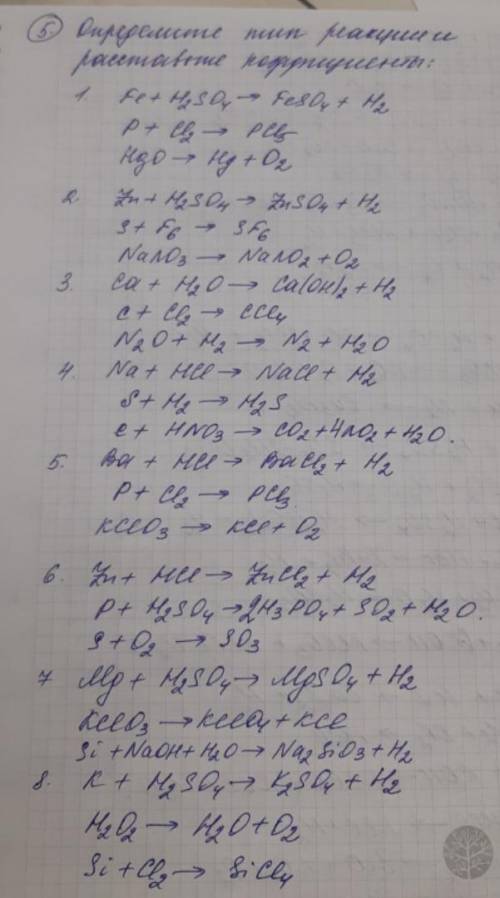 5. Определите тип реакции и
расставьте коэффициенты:
1. Fe + H₂SO₄ → FeSO₄ + H₂
P + Cl₂ → PCl₅
HgO → Hg + O₂
2. Zn + H₂SO₄ → ZnSO₄ + H₂
S + F₆ → SF₆
NaNO₃ → NaNO₂ + O₂
3. Ca + H₂O → Ca(OH)₂ + H₂
C + Cl₂ → CCl₄
N₂O + H₂ → N₂ + H₂O
4. Na + HCl → NaCl + H₂
S + H₂ → H₂S
C + HNO₃ → CO₂ + 4NO₂ + H₂O.
5. Ba + HCl → BaCl₂ + H₂
P + Cl₂ → PCl₃
KClO₃ → KCl + O₂
6. Zn + HCl → ZnCl₂ + H₂
P + H₂SO₄ → 2H₃PO₄ + SO₂ + H₂O.
S + O₂ → SO₃
7 Mg + H₂SO₄ → MgSO₄ + H₂
KClO₃ → KClO₄ + KCl
Si + NaOH + H₂O → Na₂SiO₃ + H₂
8. K + H₂SO₄ → K₂SO₄ + H₂
H₂O₂ → H₂O + O₂
Si + Cl₂ → SiCl₄